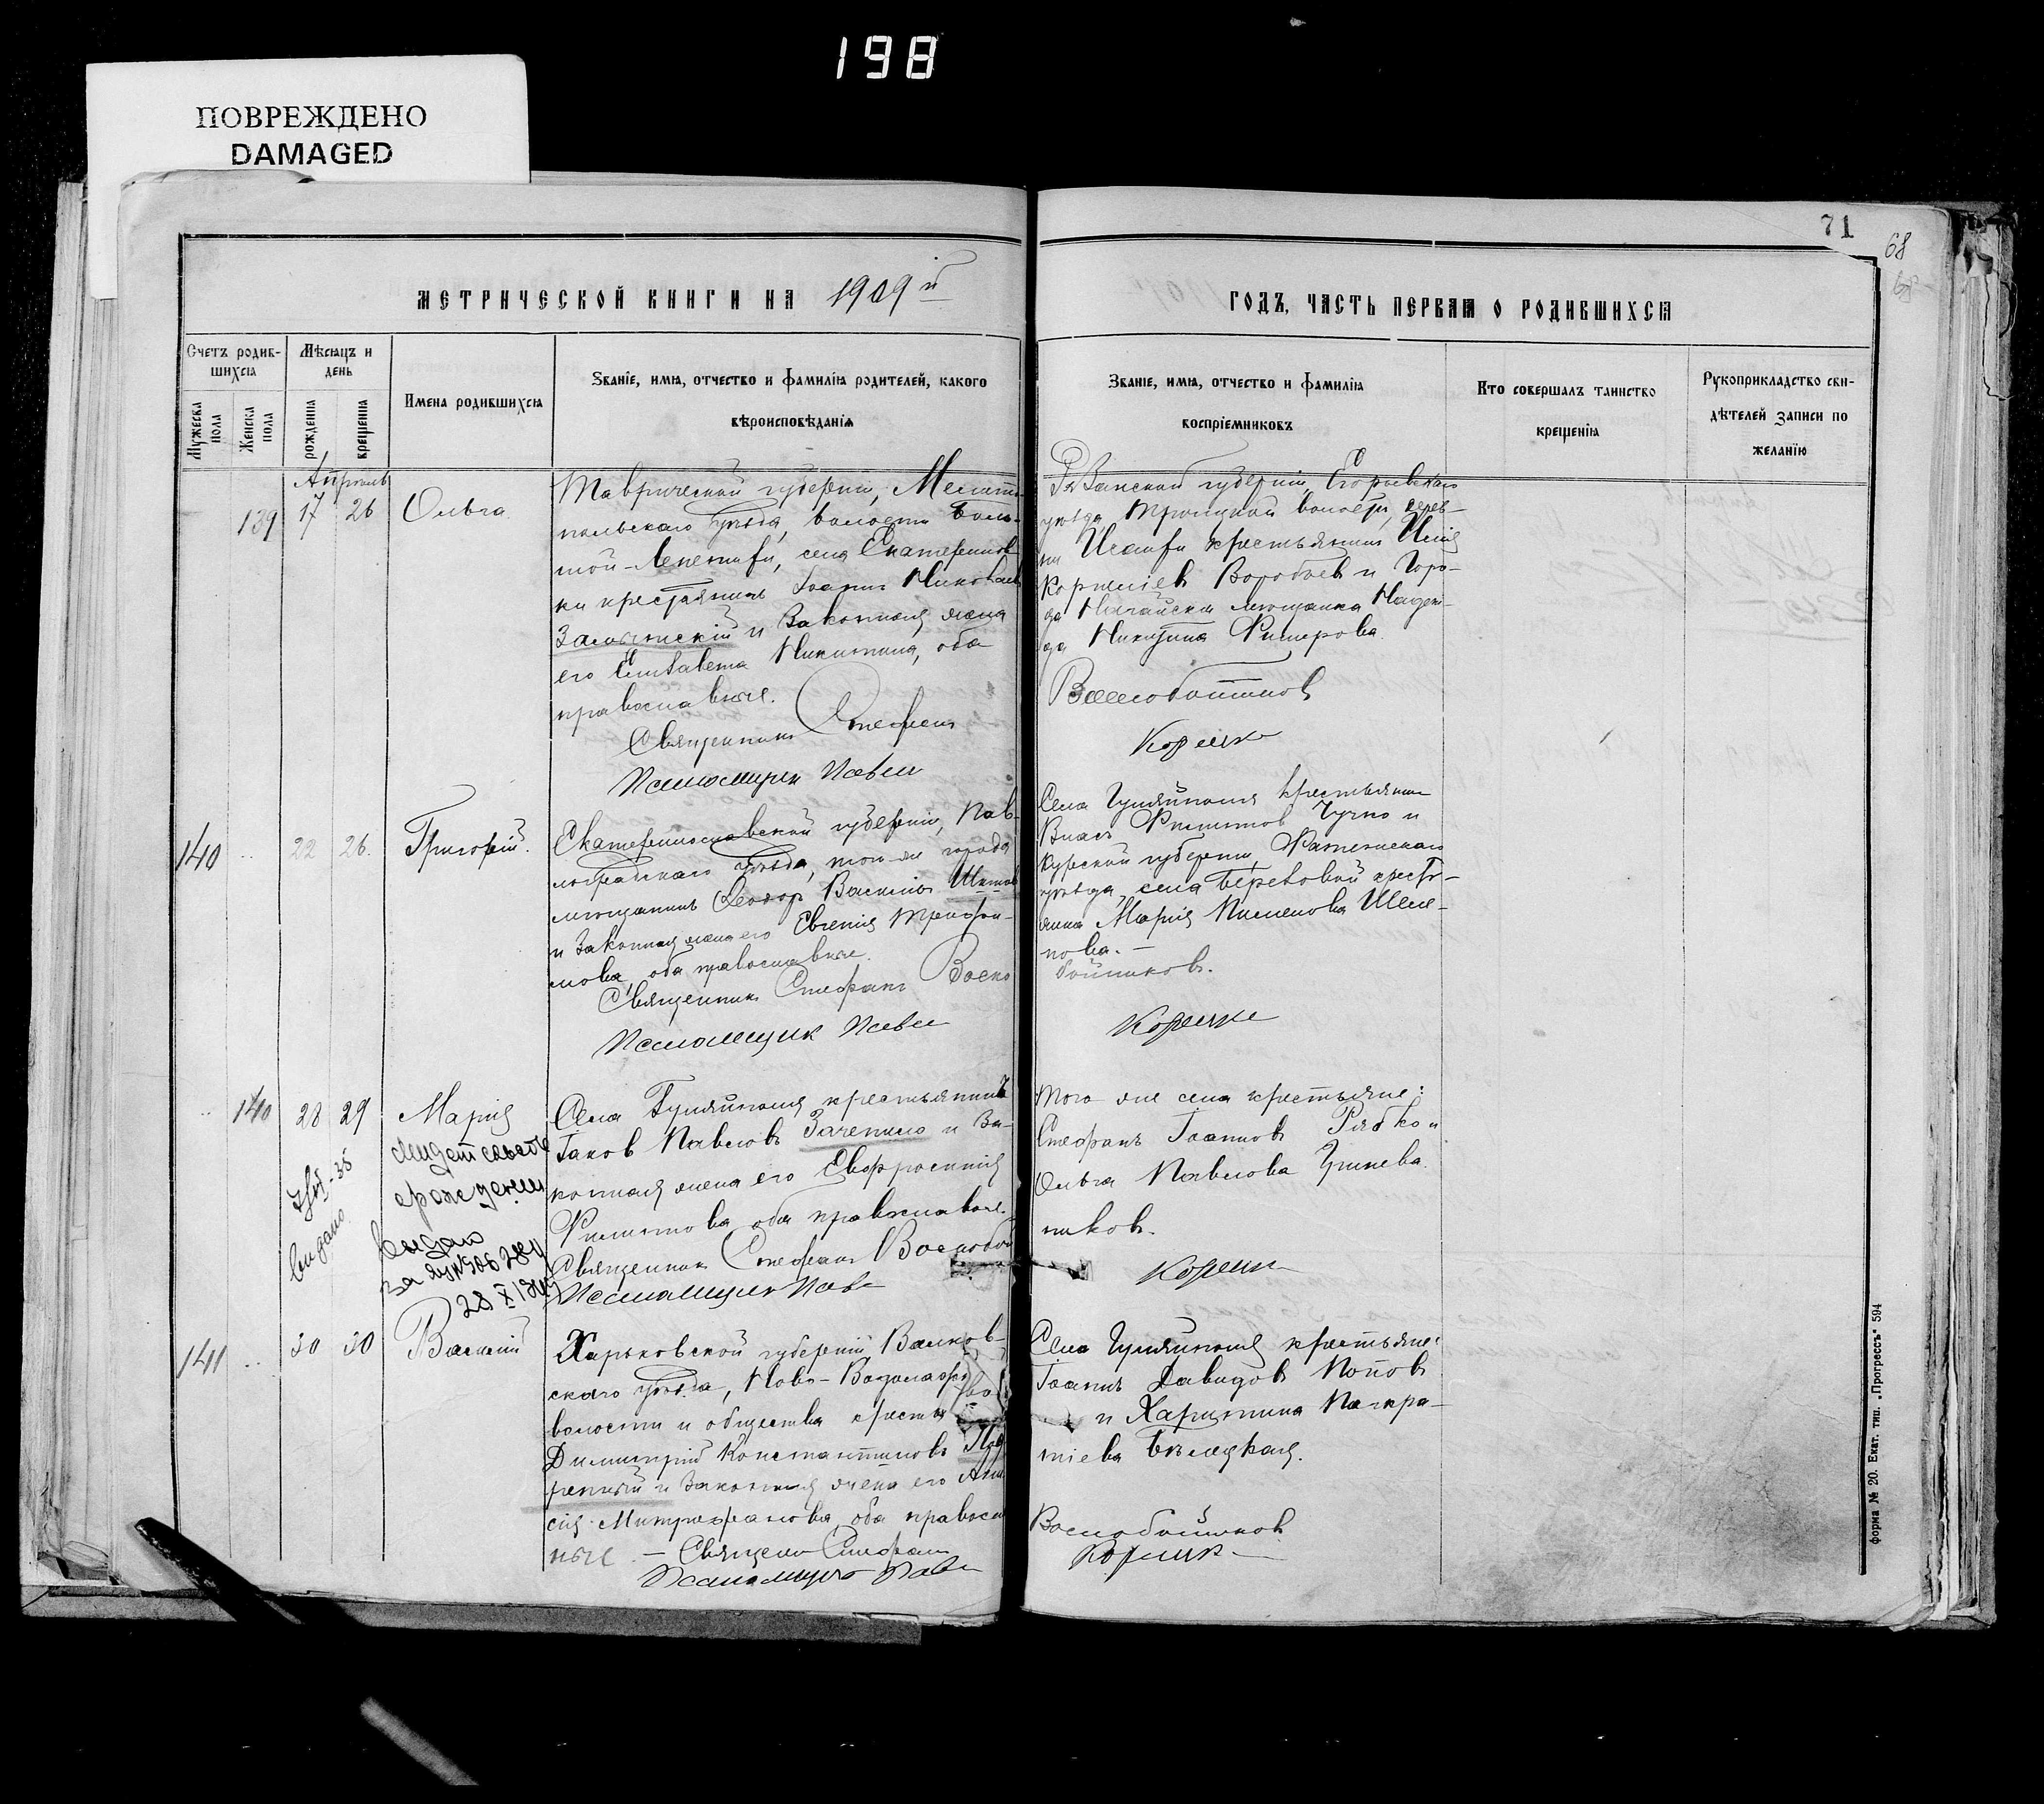 198
ПОВРЕЖДЕНО
DAMAGED
71
68
68
МЕТРИЧЕСКОЙ КНИГИ НА 1909 й
ГОДЪ, ЧАСТЬ ПЕРВАЯ О РОДИВШИХСЯ
Счетъ родив-
шихся
Мужеска пола
Женска пола
Мѣсяцъ и
день
рожденія
крещенія
Имена родившихся
Званіе, имя, отчество и фамилія родителей, какого
вѣроисповѣданія
Званіе, имя, отчество и фамилія
воспріемниковъ
Кто совершалъ таинство
крещенія
Рукоприкладство сви-
дѣтелей записи по
желанію
Апрель
139 17 26 Ольга
Таврической губерніи, Мелито-
польскаго уѣзда, волости Боль-
шой-Лепетихи, села Екатеринов
ки крестьянинъ Іоаннъ Николаевъ
и законная жена
его Елисавета Никитина, оба
православные.
Священникъ Стефанъ
Псаломщик Павел
Рязанской губерніи, Егорьевскаго
уѣзда, Троицкой волости, дерев-
ни крестьянинъ Илія
Корниліев Воробьев и горо-
да мещанка Надеж-
да Никитина
Воскобойников
Корецки
140 22 26. Григорій.
Екатеринославской губерніи, Пав-
лоградскаго уѣзда, того-же города
мещанинъ Ѳеодор Василіев
и законная жена его Евгенія Трофи-
мова, оба православные.
Священник Стефанъ Воско
Псаломщик Павел
Села Гуляйполя крестьянин
Власъ Филиппов и
Курской губерніи, Фатежскаго
уѣзда, села Березовой крест-
янка Марія Пименова Шеле-
пова. —
бойников.
Корецки
140 28 29 Марія
свідетельство
о рождении
выдано
за №
28 X
35
выдано
Села Гуляйполя крестьянинъ
Іаков Павловъ Зачепило и за-
конная жена его Евфросинія
Филиппова оба православные.
Священник Стефанъ Воскобой
Псаломщик Павел
Того же села крестьяне:
Стефанъ Іоаннов Рябко и
Ольга Павлова Гринева.
ников.
Корецки
141 30 30 Василій
Харьковской губерніи, Валков-
скаго уѣзда, Ново-Водолажс
волости и общества крестья
Димитрій Константинов
и законная жена его
сія Митрофанова, оба правосл
ные. — Священ Стефан
Псаломщик Павел
Села Гуляйполя крестьяне:
Іоаннъ Давидов Попов
и Харитина Панкра-
тіева Бѣлецкая.
Воскобойников
Корецки
Форма № 20. Екат. тип. „Прогрессъ" 594